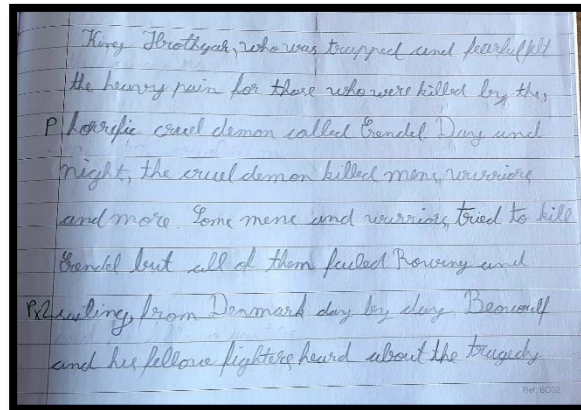 King Hrothgar, who was trapped and fearful felt
the heavy pain for those who were killed by the,
P horrific cruel demon called Grendel Day and
night, the cruel demon killed mene, wurriors
and more. Some mene and wurriors, tried to kill
Grendel but all of them failed Rowing and
Px2 sailing, from Denmark day by day Beowulf
and his fellowe fighters heard about the tragedy
Ref: BD32